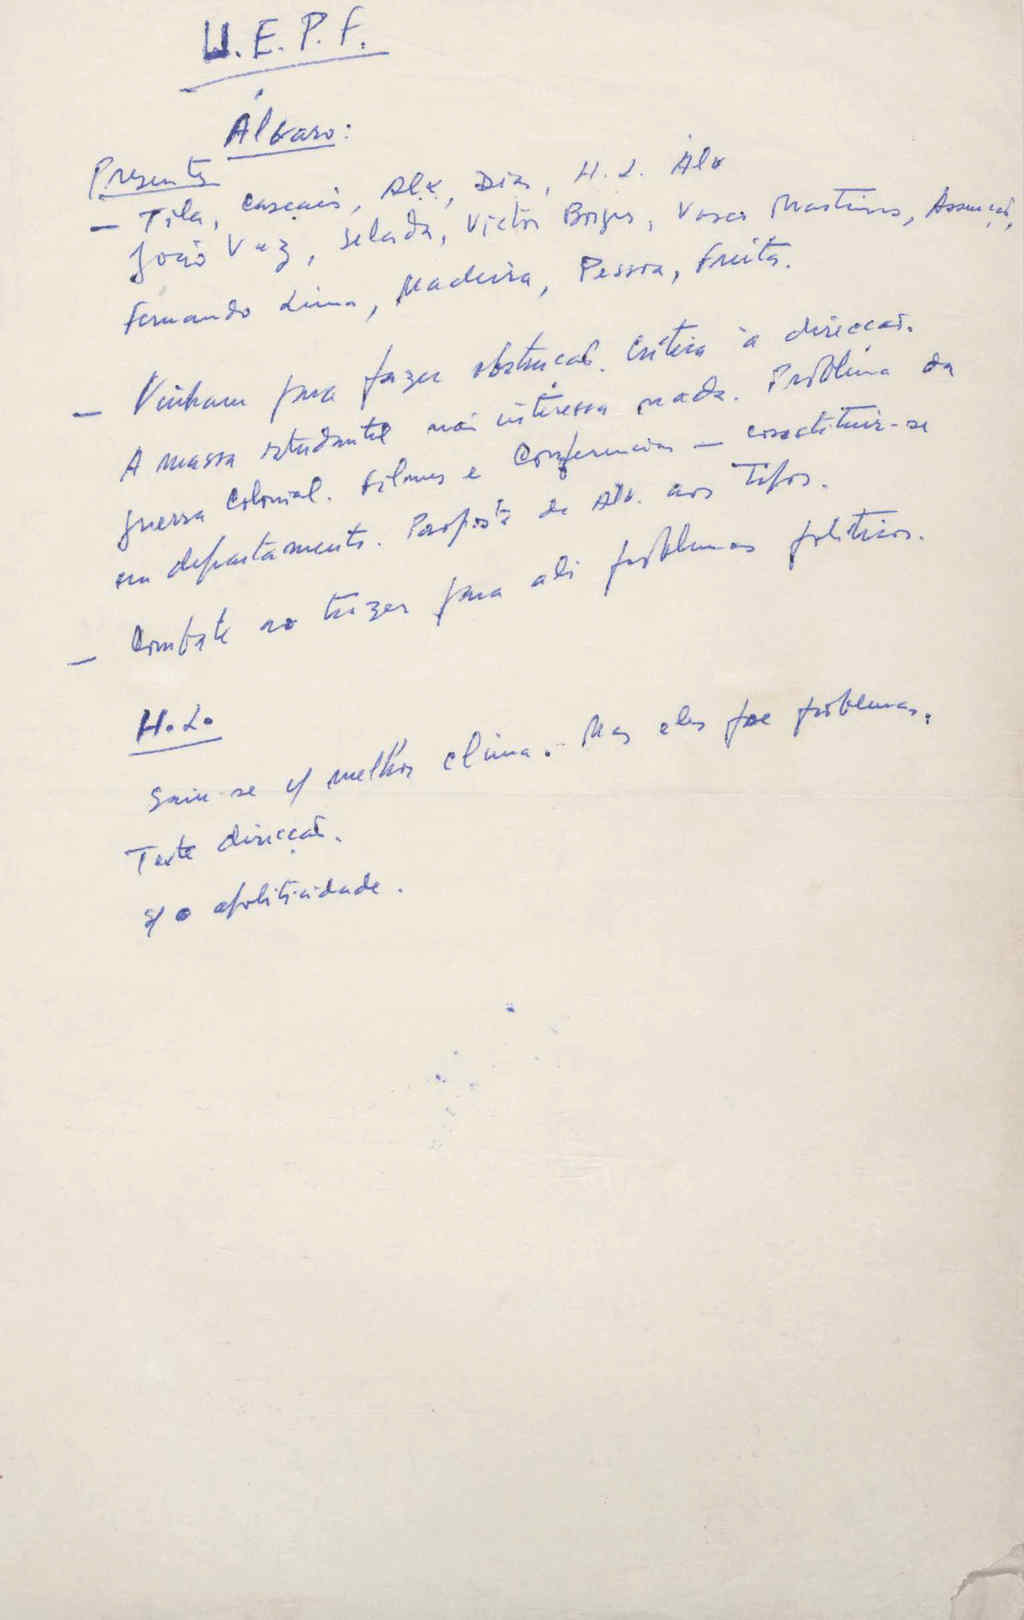 U.E.P.F.
Álvaro:
Presentes
— Tila, Cascais, Alx, Dias, H. L. Álv
João Vaz, Salada, Victor Borges, Vasco Martins, Assunção,
Fernando Lima, Madeira, Pessoa, Freitas.
— Vinham para fazer obstrução. Crítica à direcção.
A massa estudantil não interessa nada. Problema da
guerra colonial. Filmes e Conferencias — constituir-se
em departamento. Proposta de Alv. aos Tipos.
— Combate ao trazer para ali problemas políticos.
H. L.
Saiu-se c/ melhor clima. - Mas eles problemas.
Texto direcção.
s/ a apoliticidade.